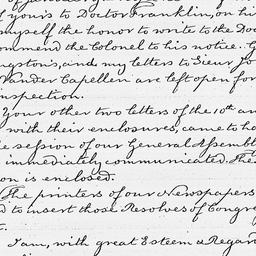 f yours to Doctor Franklin, on his
myself the honor to write to the Doc
ommend the Colonel to his notice. G
ngston's, and my letters to Sieur Jo
Vander Capellen are left open for
nspection.
Your other two letters of the 10th an
with their enclosures, came to ha
e session of our General Assembl
immediately communicated. The
on is enclosed.
The printers of our Newspapers
d to insert those Resolves of Congre
t.
I am, with great Esteem & Regard